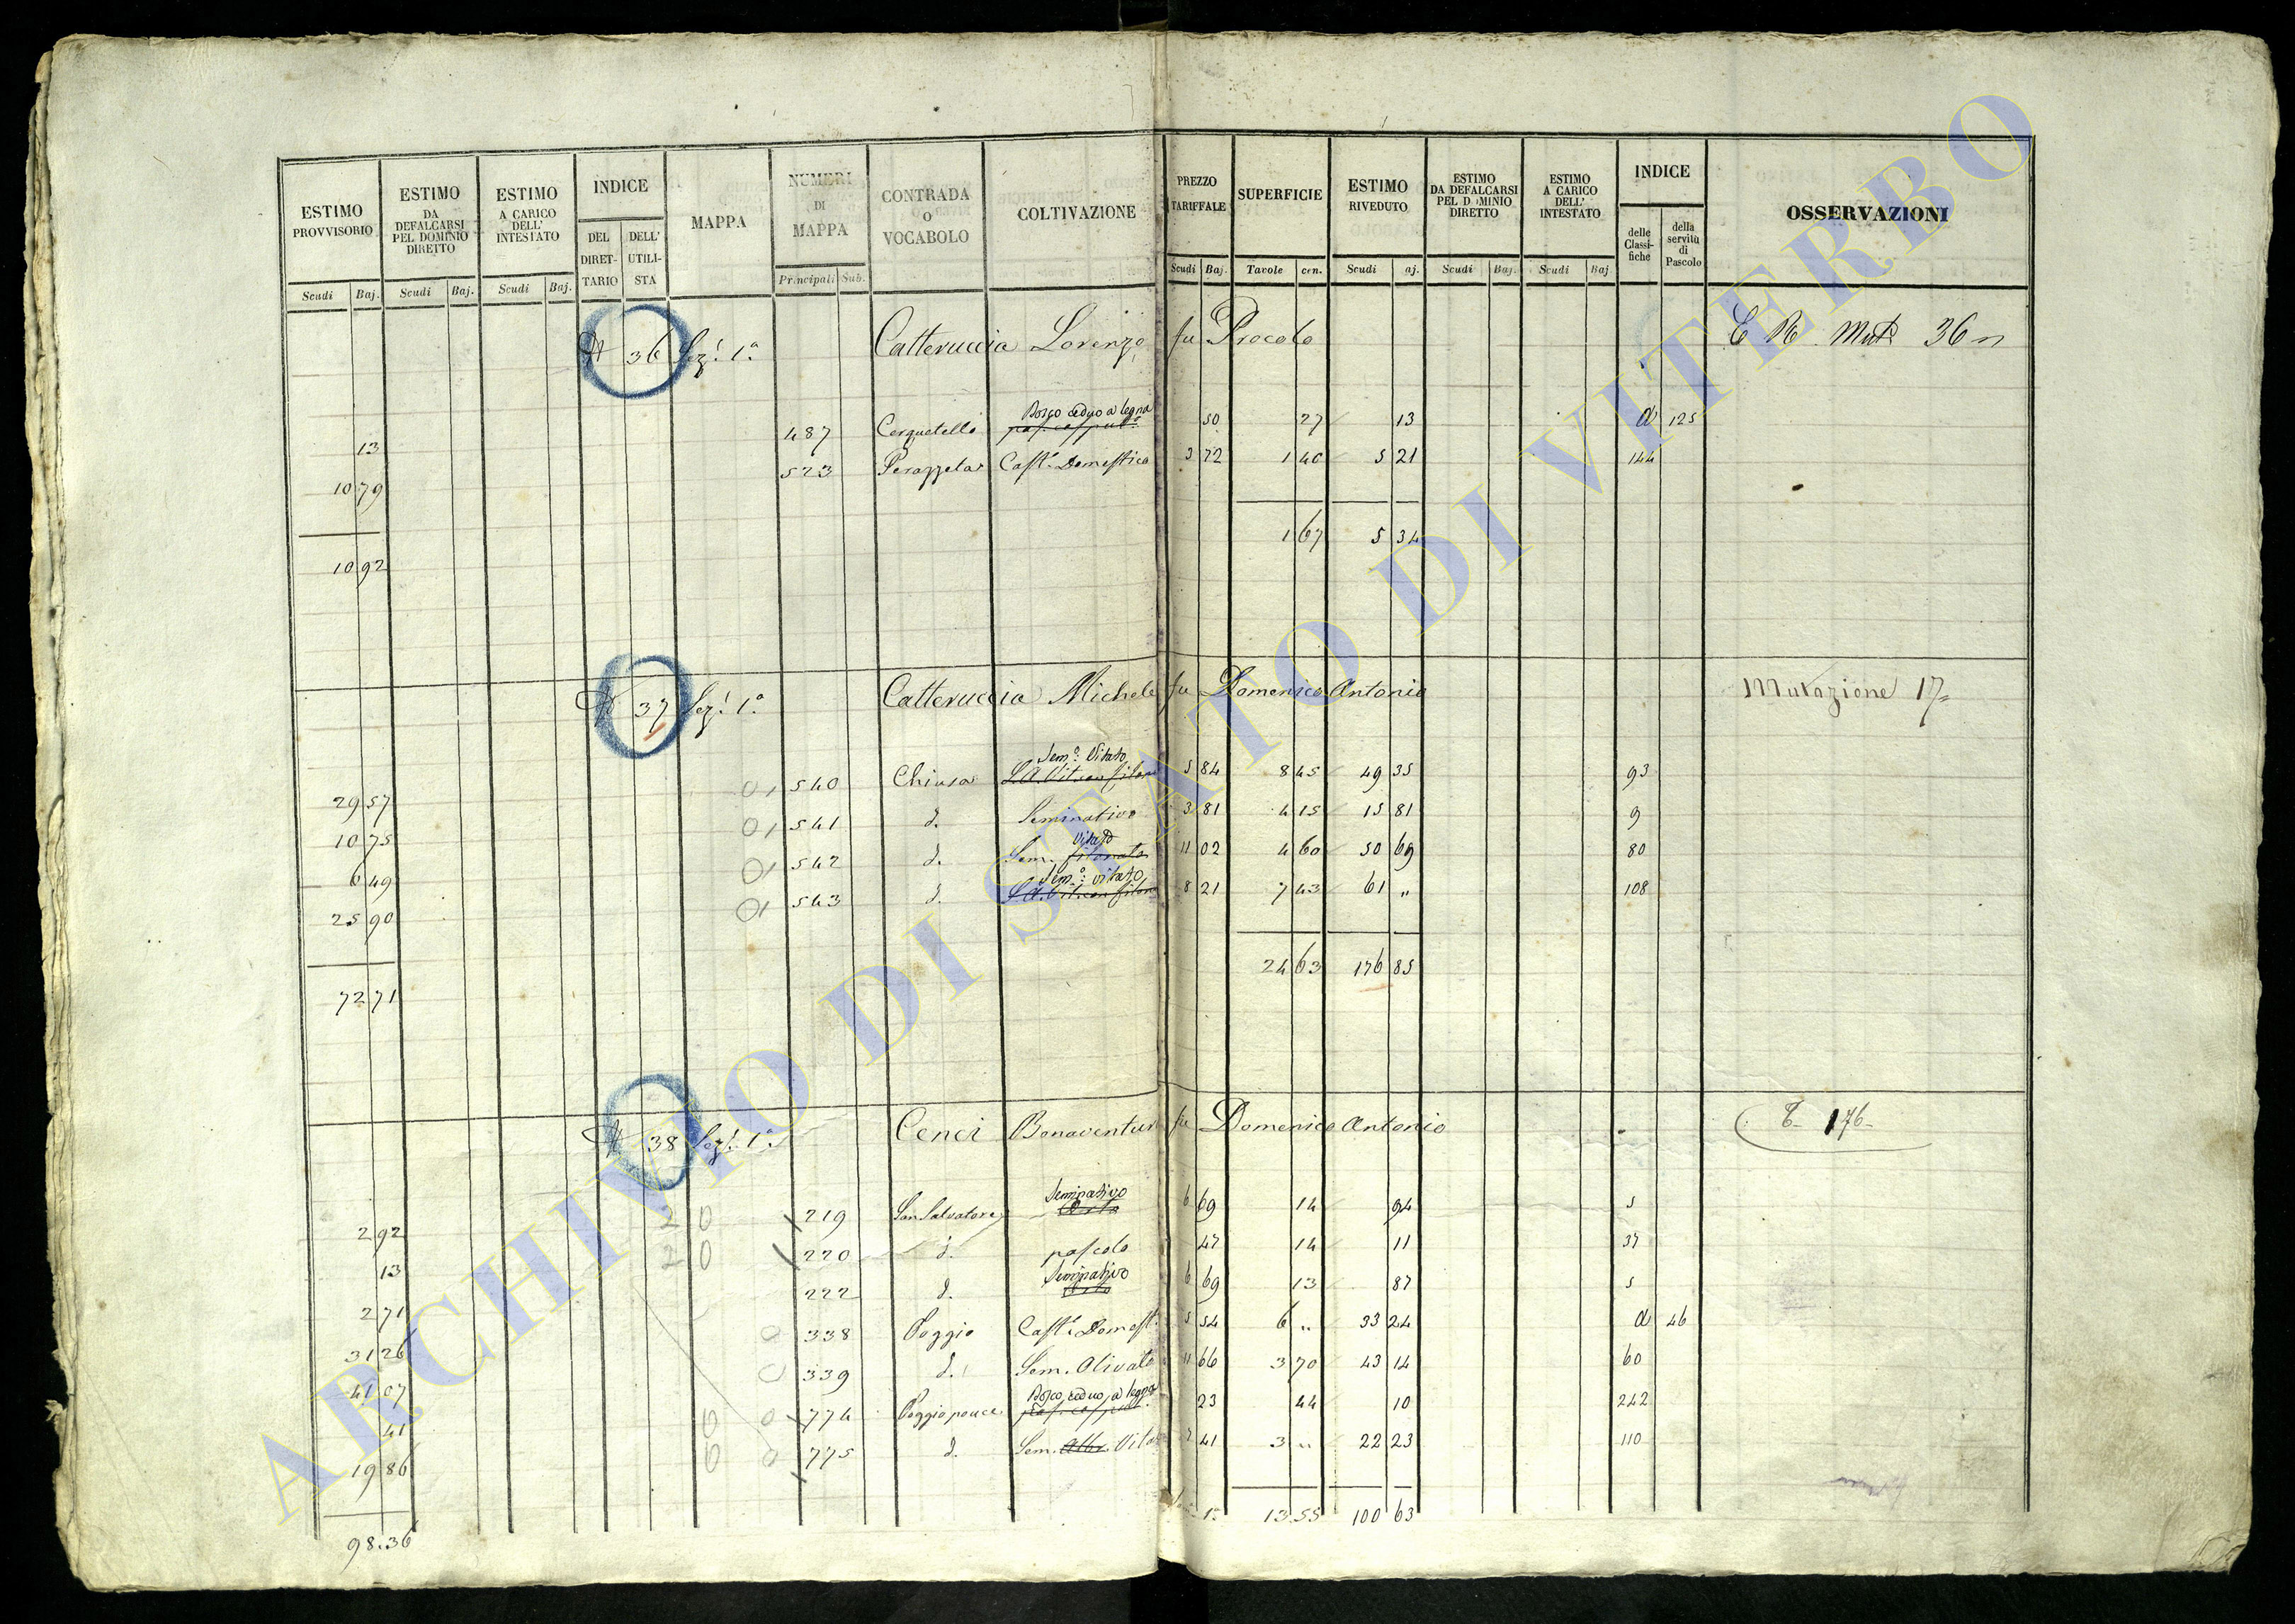 ESTIMO PROVVISORIO | ESTIMO DA DEFALCARSI PEL DOMINIO DIRETTO | ESTIMO A CARICO DELL' INTESTATO | INDICE | MAPPA | NUMERI DI MAPPA | CONTRADA O VOCABOLO | COLTIVAZIONE | PREZZO TARIFFALE | SUPERFICIE | ESTIMO RIVEDUTO | ESTIMO DA DEFALCARSI PEL DOMINIO DIRETTO | ESTIMO A CARICO DELL' INTESTATO | INDICE | OSSERVAZIONI
DEL DIRETTARIO | DELL' UTILISTA | delle Classifiche | della servitù di Pascolo
Scudi | Baj. | Scudi | Baj. | Scudi | Baj. | Principali | Sub. | Scudi | Baj. | Tavole | cen. | Scudi | aj. | Scudi | Baj. | Scudi | Baj
36 Sez. 1a Catteruccia Lorenzo fu Procolo 36
13 | 487 | Cerquetello | Bosco ceduo a legna | 50 | 27 | 13 | a | 125
10 79 | 523 | Perazzeta | Cast. Domestico | 3 72 | 1 40 | 5 21 | 144
1 67 | 5 34
10 92
37 Sez. 1a Catteruccia Michele fu Domenico Antonio Mutazione 17
29 57 | 01 | 540 | Chiusa | Sem.o Vitato | 5 84 | 8 45 | 49 35 | 93
10 75 | 01 | 541 | d. | Seminativo | 3 81 | 4 15 | 15 81 | 9
6 49 | 01 | 542 | d. | Sem. filonato Vitato | 11 02 | 4 60 | 50 69 | 80
25 90 | 01 | 543 | d. | Sem.o vitato | 8 21 | 7 43 | 61 " | 108
24 63 | 176 85
72 71
38 Sez. 1a Cenci Bonaventura fu Domenico Antonio 176
2 92 | 2 0 | 219 | San Salvatore | Seminativo Orto | 6 69 | 14 | 94 | 5
13 | 2 0 | 220 | d. | pascolo | 47 | 14 | 11 | 37
2 71 | 222 | d. | Seminativo Orto | 6 69 | 13 | 87 | 5
31 26 | 0 | 338 | Poggio | Cast. Domest. | 5 54 | 6 " | 33 24 | a | 46
41 07 | 0 | 339 | d. | Sem. Olivato | 11 66 | 3 70 | 43 14 | 60
41 | 0 0 | 774 | Poggio ponce | Bosco ceduo a legna | 23 | 44 | 10 | 242
19 86 | 0 0 | 775 | d. | Sem. Alb. Vitato | 7 41 | 3 " | 22 23 | 110
13 55 | 100 63
98.36
ARCHIVIO DI STATO DI VITERBO